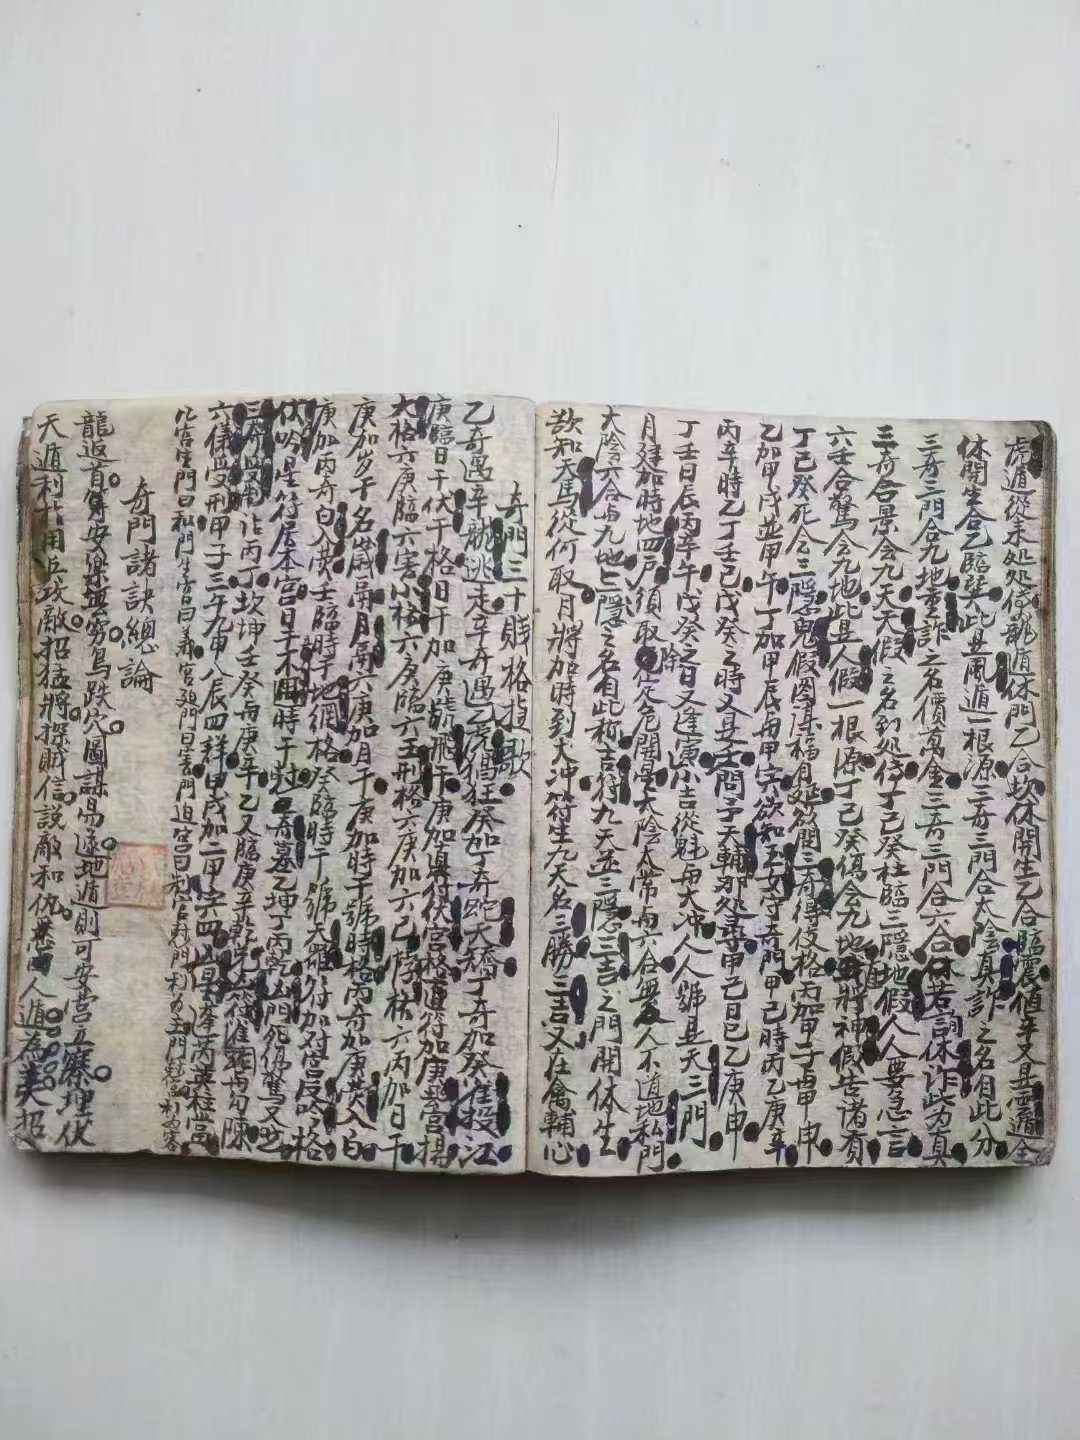 虎遁從未処処倚龍遁休門乙合坎休開生乙合臨震值辛又是雲遁全
休開生合乙臨巽此是風遁一根源三奇三門合太陰真詐之名自此分
三奇三門合九地重詐之名價萬金三奇三門合六合休若詞休詐此為真
三奇合景會九天天假之名到処倚丁己癸杜臨三隱地假人人要急言
六壬合驚會九地此是人假一根源丁己癸傷會九地神假告諸賓
丁己癸死會三隱鬼假因得福自延欲問三奇得使格丙加甲子與甲申
乙加甲戌並甲午丁加甲辰與甲寅欲知玉女守奇門甲己時丙乙庚辛
丙辛時乙丁壬己戊癸之時又是壬問予天輔那処尋甲己日己乙庚申
丁壬日辰丙辛午戊癸之日又逢寅小吉從魁與太冲人人號是天三門
月建加時地四戶須取除定危開是太陰太常與六合無人不道地私門
太陰六合與九地三隱之名自此称吉符九天並三隱三吉之門開休生
欲知天馬從何取月將加時到太冲符生九天名三勝三吉又在禽輔心
奇門三十賤格指歌
乙奇遇辛龍逃走辛奇遇乙虎猖狂癸加丁奇蛇夭矯丁奇加癸雀投江
庚臨日干伏干格日干加庚號飛干庚加直符伏宮格直符加庚飛宮揚
大格六庚臨六癸小格六庚臨六壬刑格六庚加六己悖格六丙加日干
庚加岁干名歲格月格六庚加月干庚加時干號時格丙奇加庚熒入白
庚加丙奇白入熒壬臨時干地網格癸臨時干號天羅符加对宮反吟格
伏吟是符居本宮日干不用時干刑三奇墓乙坤丁丙乾凶門死傷驚又必
三奇受制占丙丁坎坤壬癸與庚辛乙又臨庚辛乾兌六符雀與勾陳
六儀受刑甲子三午九申八辰四詳甲戌加二甲字四凶星逢芮英柱當
凡宮生門曰和門生宮曰義宮尅門曰害門迫宮曰宮尅門利为主門尅宮利为客
奇門諸訣總論
龍返首兮安樂無窮鳥跌穴圖謀易遂地遁則可安營立寨埋伏
天遁利於用兵攻敵招猛將探賊信說敵和仇無凶人遁為美招